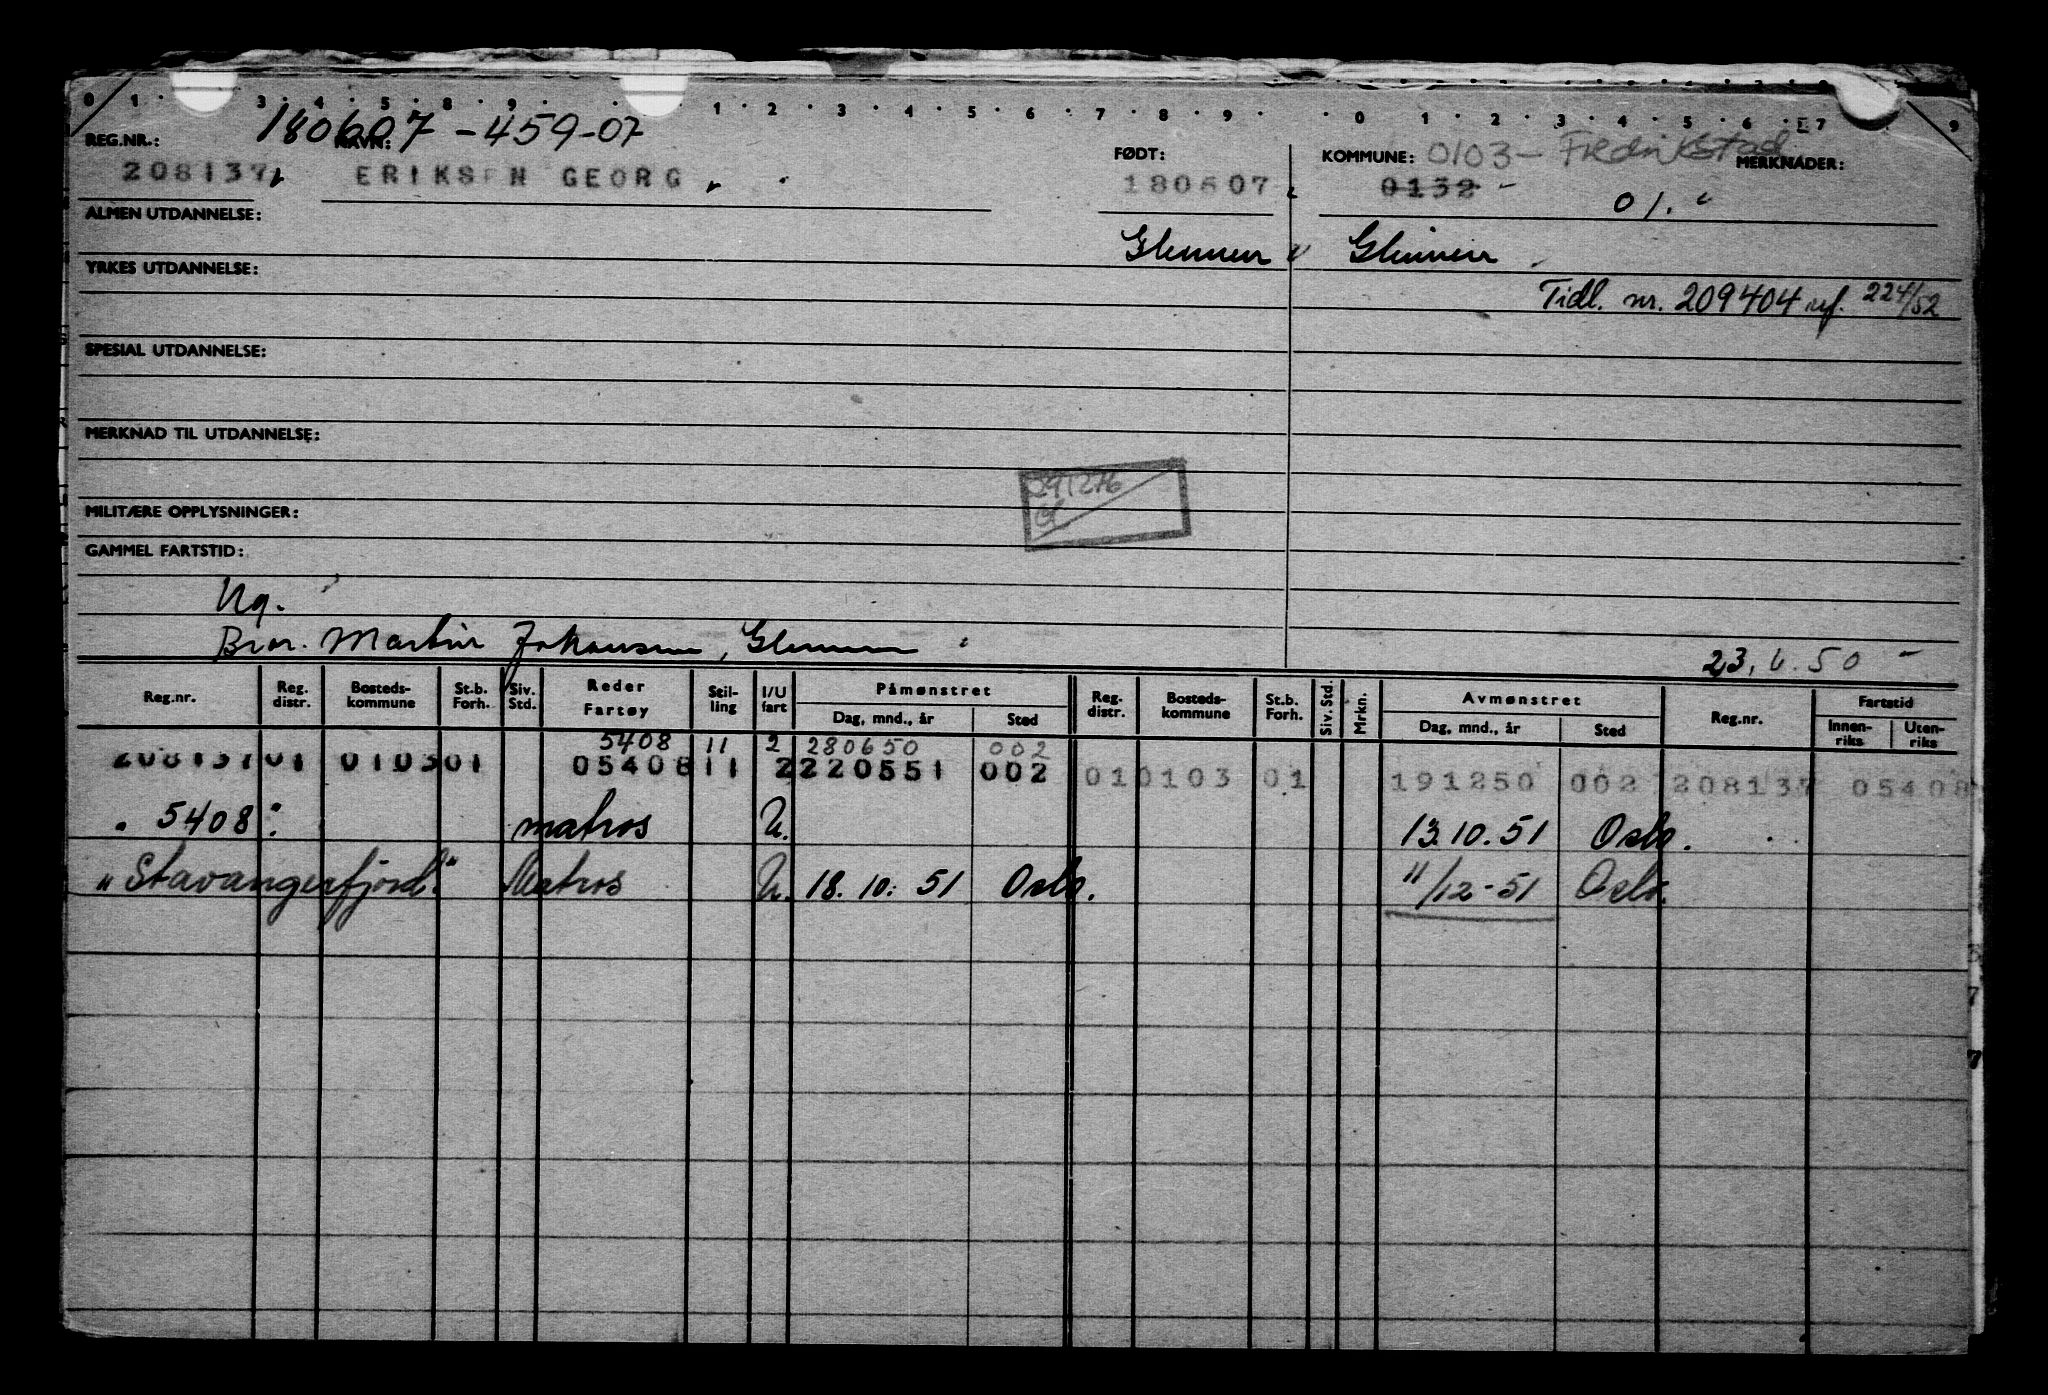 0 1 . 3 . 4 . 5 . 8 . 9 . 1 . 2 . 3 . 4 . 5 . 6 . 7 . 8 . 9 . . 0 1 . 2 . 3 . 4 . 5 . 6 . 7 9
180607-459-07
REG.NR.: NAVN: FØDT: KOMMUNE: 0103- Fredrikstad MERKNADER:
208137 ERIKSEN GEORG 180607 0132 -
01.
ALMEN UTDANNELSE:
Glemmen Glemmen
YRKES UTDANNELSE:
Tidl. nr. 209404 224/52
SPESIAL UTDANNELSE:
MERKNAD TIL UTDANNELSE:
291276
MILITÆRE OPPLYSNINGER:
GAMMEL FARTSTID:
Ug.
Bror. Martin Johansen, Glemmen
23.6.50 -
Reg.nr. Reg. distr. Bosteds-kommune St.b. Forh. Siv. Std. Reder Fartøy Stil-ling I/U fart Påmønstret Dag, mnd., år Sted Reg-distr. Bosteds-kommune St.b. Forh. Siv. Std. Mrkn. Avmønstret Dag, mnd., år Sted Reg.nr. Fartstid Innen-riks Uten-riks
5408 11 2 280650 002
208137 01 0103 01 05408 11 2 220551 002 01 0103 01 191250 002 208137 05408
" 5408 : matros U. 13.10.51 Oslo.
"Stavangerfjord" Matros U. 18.10.51 Oslo. 11/12-51 Oslo.